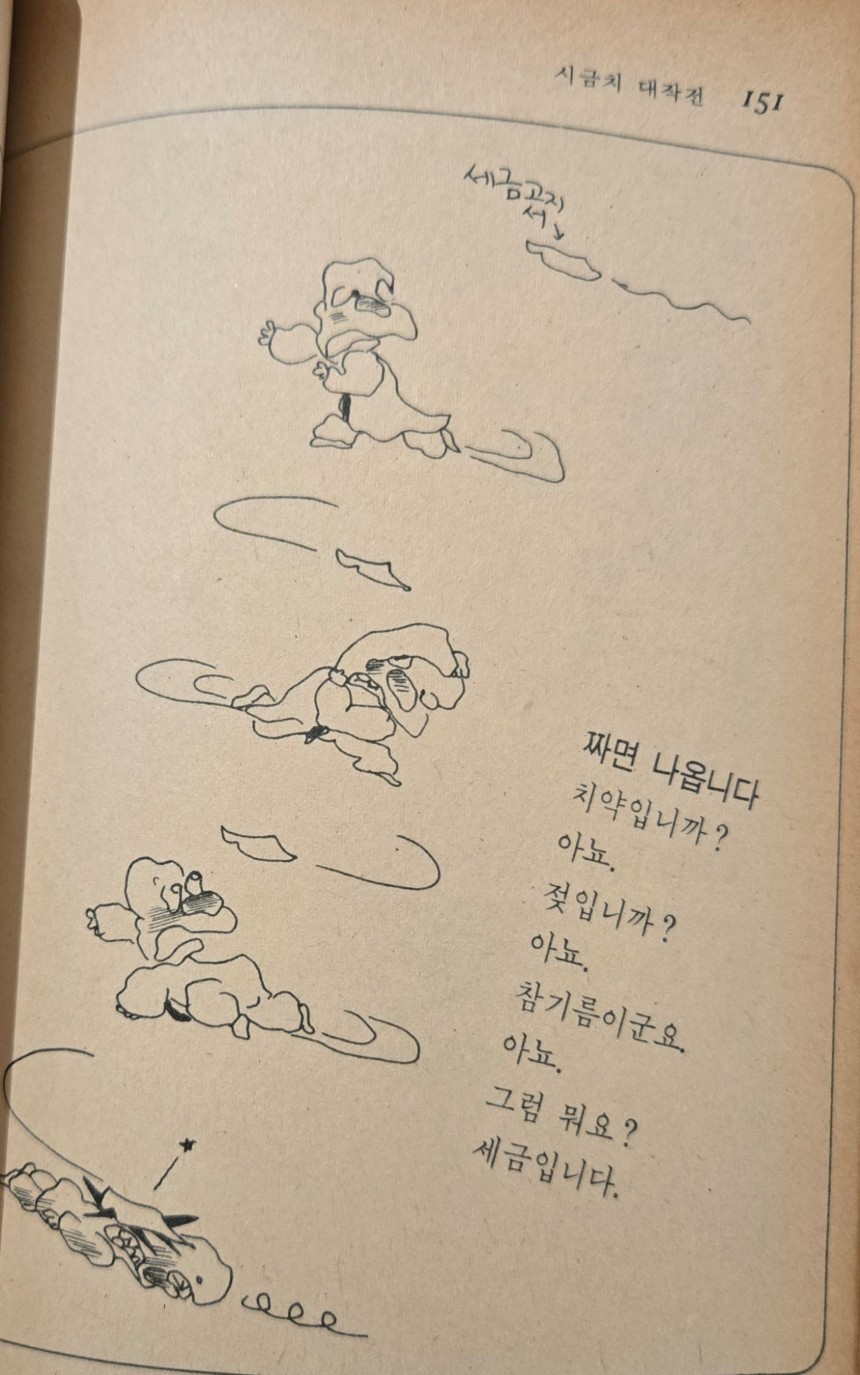 시금치 대작전 151
세금고지
서
짜면 나옵니다
치약입니까?
아뇨.
젖입니까?
아뇨.
참기름이군요.
아뇨.
그럼 뭐요?
세금입니다.